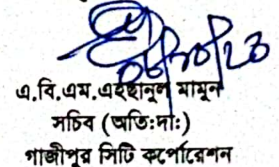 ০৮/১০/২৩
এ.বি.এম.এহছানুল মামুন
সচিব (অতি:দা:)
গাজীপুর সিটি কর্পোরেশন